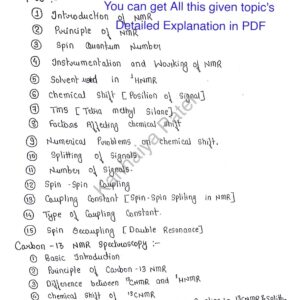 You can get All this given topic's
Detailed Explanation in PDF
① Introduction of NMR
② Principle of NMR
③ Spin Quantum Number
④ Instrumentation and Working of NMR
⑤ Solvent used in ¹HNMR
⑥ Chemical Shift [Position of Signal]
⑦ TMS [Tetra methyl Silane]
⑧ Factors Affecting chemical shift
⑨ Numerical Problems on chemical shift.
⑩ Splitting of Signals.
⑪ Number of Signals.
⑫ Spin-Spin Coupling
⑬ Coupling Constant [Spin-Spin Spliting in NMR]
⑭ Type of Coupling Constant.
⑮ Spin Decoupling [Double Resonance]
Carbon-13 NMR Spectroscopy :-
① Basic Introduction
② Principle of Carbon-13 NMR
③ Difference between ¹³CNMR and ¹HNMR
④ Chemical Shift of ¹³CNMR